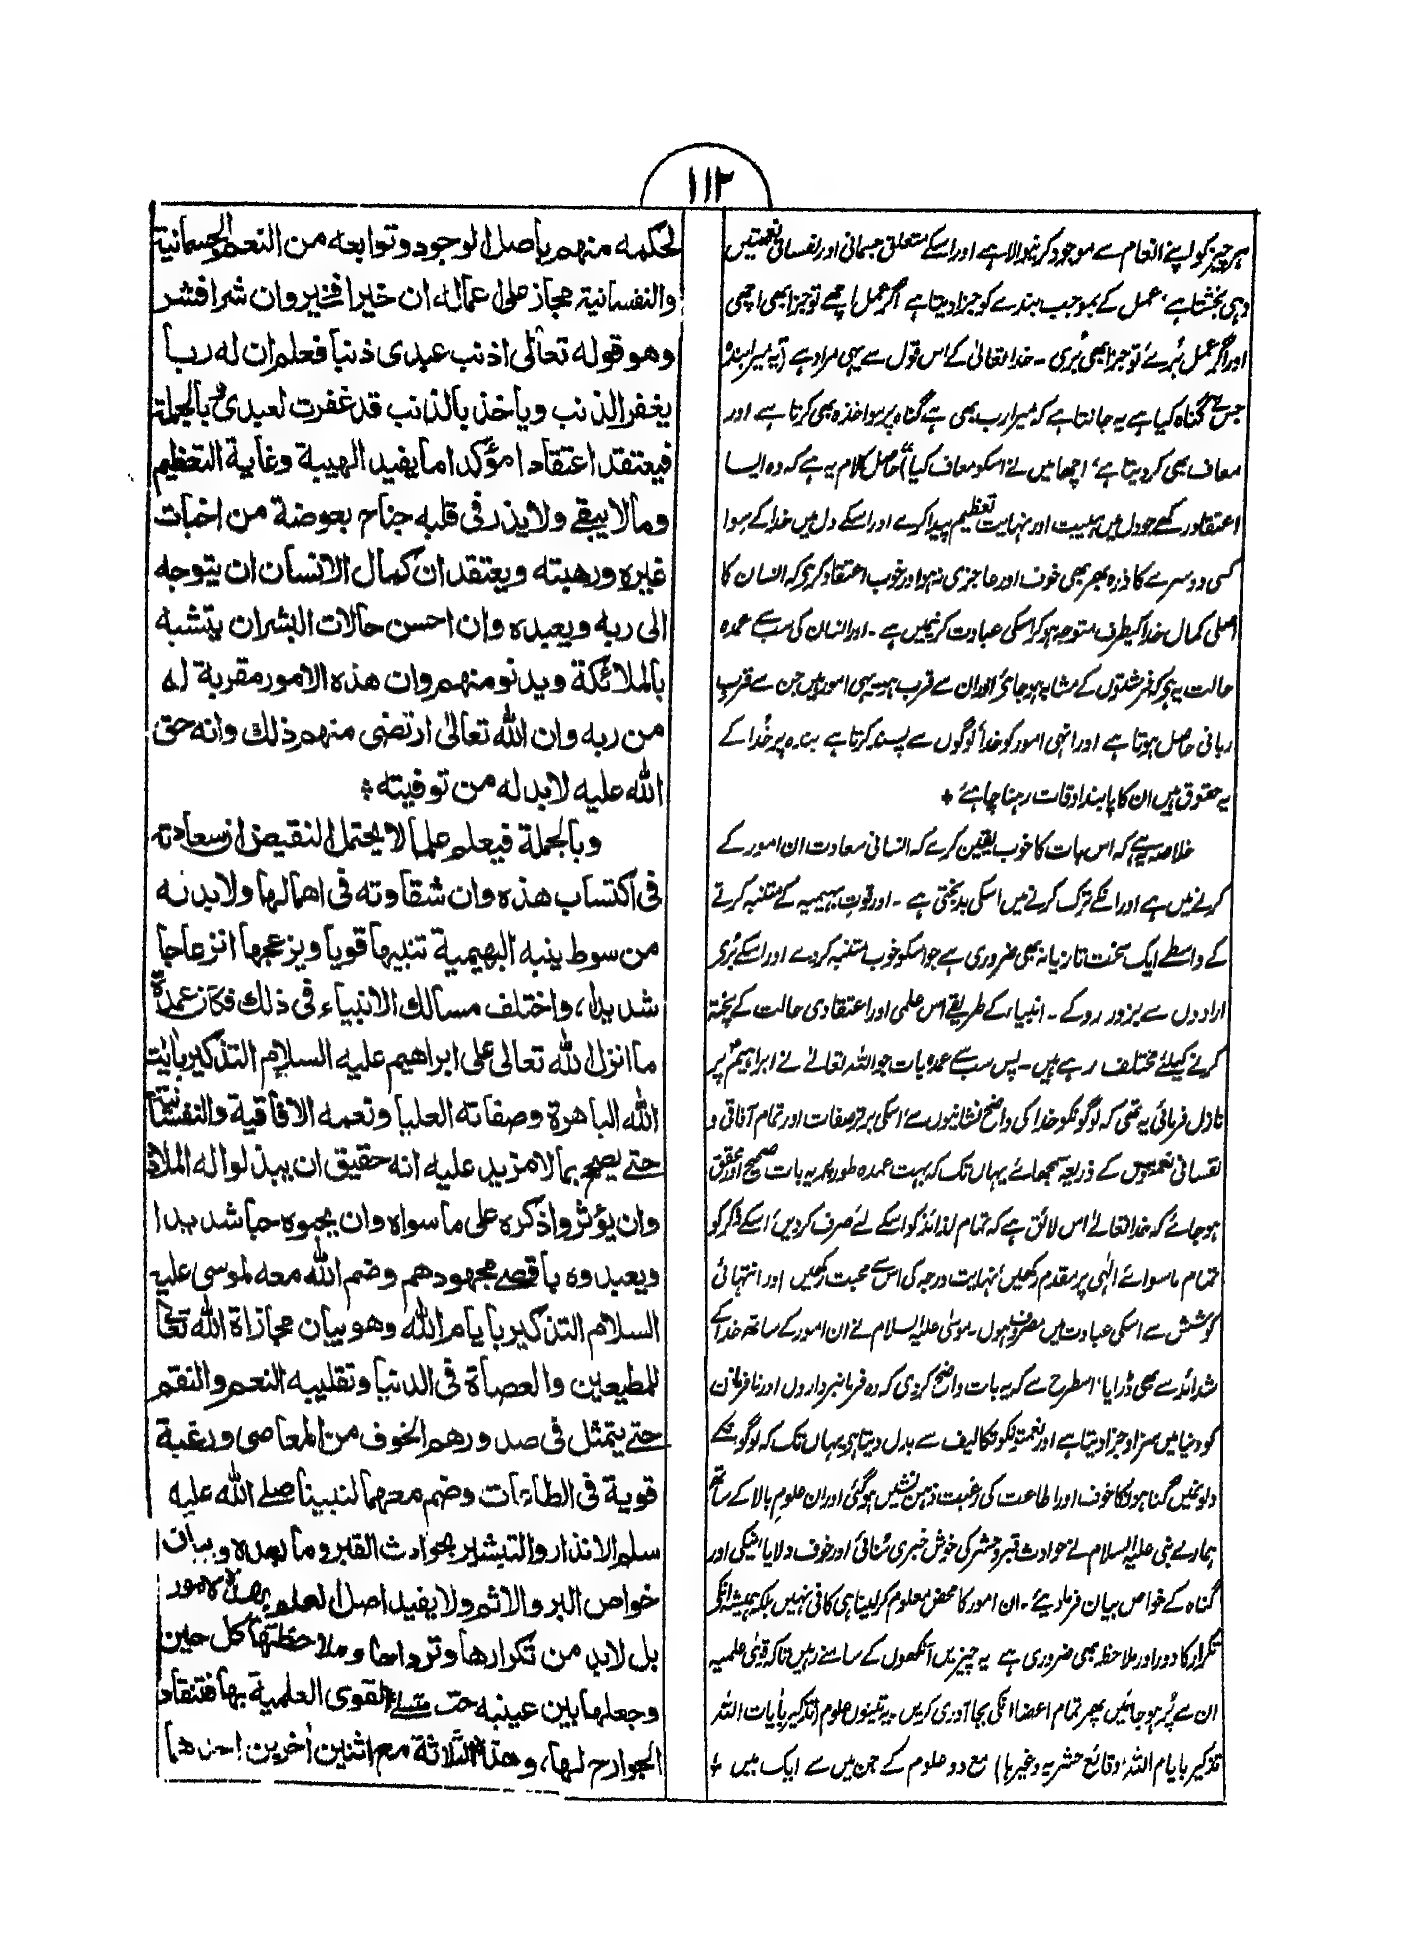 ١١٢
ہر چیز کو اپنے انعام سے موجود کرنیوالا ہے اور اسکے متعلق جسمانی اور نفسانی نعمتیں
وہی بخشتا ہے، عمل کے بموجب بندے کو جزا دیتا ہے اگر عمل اچھے تو جزا بھی اچھی
اور اگر عمل بُرے تو جزا بھی بُری ۔ خدا تعالیٰ کے اس قول سے یہی مراد ہے (یہ میرا بندہ
جس نے گناہ کیا ہے یہ جانتا ہے کہ میرا رب بھی ہے گناہ پر مواخذہ بھی کرتا ہے اور
معاف بھی کر دیتا ہے، اچھا میں نے اسکو معاف کیا) حاصل کلام یہ ہے کہ وہ ایسا
اعتقاد رکھے جو دل میں ہیبت اور نہایت تعظیم پیدا کرے اور اسکے دل میں خدا کے سوا
کسی دوسرے کا ذرہ بھر بھی خوف اور عاجزی نہ ہو اور خوب اعتقاد کرے کہ انسان کا
اصلی کمال خدا کیطرف متوجہ ہو کر اسکی عبادت کرنیمیں ہے ۔ اور انسان کی سب سے عمدہ
حالت یہ ہے کہ فرشتوں کے مشابہ ہو جائے اور ان سے قرب ہو یہی امور ہیں جن سے قرب
ربانی حاصل ہوتا ہے اور انہی امور کو خدا لوگوں سے پسند کرتا ہے بندہ پر خُدا کے
یہ حقوق ہیں ان کا پابند اوقات رہنا چاہئے ۔
خلاصہ یہ ہے کہ اس بات کا خوب یقین کرے کہ انسانی سعادت ان امور کے
کرنے میں ہے اور انکے ترک کرنے میں اسکی بدبختی ہے ۔ اور قوت بہیمیہ کے متنبہ کرنے
کے واسطے ایک سخت تازیانہ بھی ضروری ہے جو اسکو خوب متنبہ کر دے اور اسکے بُرے
ارادوں سے بزور روکے ۔ انبیاء کے طریقے اس علمی اور اعتقادی حالت کے پختہ
کرنے کیلئے مختلف رہے ہیں ۔ پس سب سے عمدہ بات جو اللہ تعالےٰ نے ابراہیمؑ پر
نازل فرمائی یہ تھی کہ لوگونکو خدا کی واضح نشانیوں سے، اسکی برتر صفات اور تمام آفاقی و
نفسانی نعمتوں کے ذریعہ سمجھائے یہاں تک کہ بہت عمدہ طور پر یہ بات صحیح اور محقق
ہو جائے کہ خدا تعالےٰ اس لائق ہے کہ تمام لذائذ کو اسکے لئے صرف کر دیں، اسکے ذکر کو
تمام ماسوائے الٰہی پر مقدم رکھیں، نہایت درجہ کی اس سے محبت رکھیں اور انتہائی
کوشش سے اسکی عبادت میں مصروف ہوں ۔ موسیٰ علیہ السلام نے ان امور کے ساتھ خدا کے
شدائد سے بھی ڈرایا، اسطرح سے کہ یہ بات واضح کر دی کہ وہ فرمانبرداروں اور نافرمانوں
کو دنیا میں سزا و جزا دیتا ہے اور نعمتونکو تکالیف سے بدل دیتا ہے یہاں تک کہ لوگونکے
دلونمیں گناہونکا خوف اور اطاعت کی رغبت ذہن نشیں ہو گئی اور ان علوم بالا کے ساتھ
ہمارے نبی علیہ السلام نے حوادث قبر و حشر کی خوش خبری سُنائی اور خوف دلایا، نیکی اور
گناہ کے خواص بیان فرما دیئے ۔ ان امور کا محض معلوم کر لینا ہی کافی نہیں بلکہ ہمیشہ انکے
تکرار کا دور اور ملاحظہ بھی ضروری ہے یہ چیزیں آنکھوں کے سامنے رہیں تاکہ قوی علمیہ
ان سے پُر ہو جائیں پھر تمام اعضا انکی بجا آوری کریں ۔ یہ تینوں علوم (تذکیر بآیات اللہ
تذکیر بایام اللہ، وقائع حشریہ وغیرہا) مع دو علوم کے جن میں سے ایک میں
لحكمه منهم بأصل الوجود وتوابعه من النعم الجسمانية
والنفسانية مجاز على اعماله ان خيرا فخير وان شرا فشر
وهو قوله تعالى اذنب عبدى ذنبا فعلم ان له ربا
يغفر الذنب وياخذ بالذنب قد غفرت لعبدى وبالجملة
فيعتقد اعتقادا مؤكدا ما يفيد الهيبة وغاية التعظيم
وما لا يبقے ولا يذر فى قلبه جناح بعوضة من اخبات
غيره ورهبته ويعتقد ان كمال الانسان ان يتوجه
الى ربه ويعبده وان احسن حالات البشر ان يتشبه
بالملائكة ويدنو منهم وان هذه الامور مقربة له
من ربه وان الله تعالى ارتضى منهم ذلك وانه حق
الله عليه لا بد له من توفيته
وبالجملة فيعلم علما لا يحتمل النقيض ان سعادته
فى اكتساب هذه وان شقاوته فى اهمالها ولا بد له
من سوط ينبه البهيمية تنبيها قويا ويزعجها انزعاجا
شديدا، واختلف مسالك الانبياء فى ذلك فكان عمدة
ما انزل الله تعالى على ابراهيم عليه السلام التذكير بآيات
الله الباهرة وصفاته العليا ونعمه الافاقية والنفسانية
حتے يصح بما لا مزيد عليه انه حقيق ان يبذلوا له الملاذ
وان يؤثروا ذكره على ما سواه وان يحبوه حبا شديدا
ويعبدوه باقصے مجهودهم وضم الله معه لموسى عليه
السلام التذكير بايام الله وهو بيان مجازاة الله تعالى
للمطيعين والعصاة فى الدنيا وتقليبه النعم والنقم
حتے يتمثل فى صدورهم الخوف من المعاصى ورغبة
قوية فى الطاعات وضم معهما لنبينا صلے الله عليه
سلم الانذار والتبشير بحوادث القبر وما بعده وبيان
خواص البر والاثم ولا يفيد اصل العلم بهذه الامور
بل لا بد من تكرارها وتردادها وملاحظتها كل حين
وجعلها بين عينيه حتى تمتلے القوى العلمية بها فتنقاد
الجوارح لها، وهذه الثلاثة مع اثنين أخرين احدهما